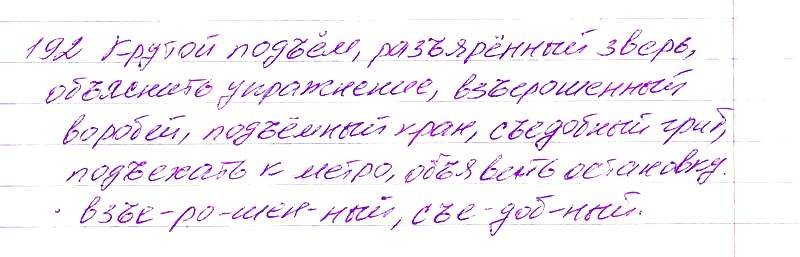 192 Крутой подъём, разъярённый зверь,
объяснить упражнение, взъерошенный
воробей, подъёмный кран, съедобный гриб,
подъехать к метро, объявить остановку.
взъе-ро-шен-ный, съе-доб-ный.